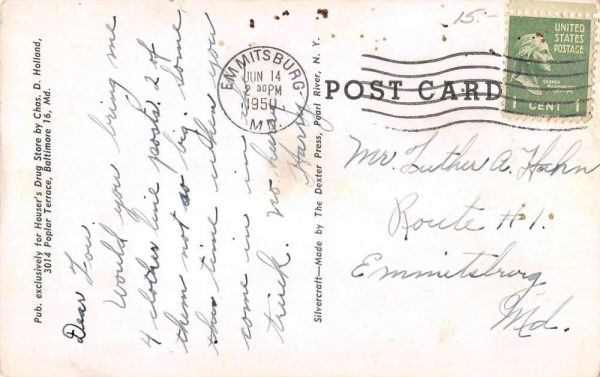 Pub. exclusively for Houser's Drug Store by Chas. D. Holland,
3014 Poplar Terrace, Baltimore 16, Md.
Dear Lou.
Would you bring me
4 clothes line posts. 2 of
them not so big. Some
time when you
come in in
truck. no hurry
Harry
Silvercraft—Made by The Dexter Press, Pearl River, N. Y.
15.-
EMMITSBURG
JUN 14
2 30 PM
1950
MD.
POST CARD
UNITED
STATES
POSTAGE
1 CENT 1
Mr. Luther A. Hahn
Route #1.
Emmitsburg
Md.